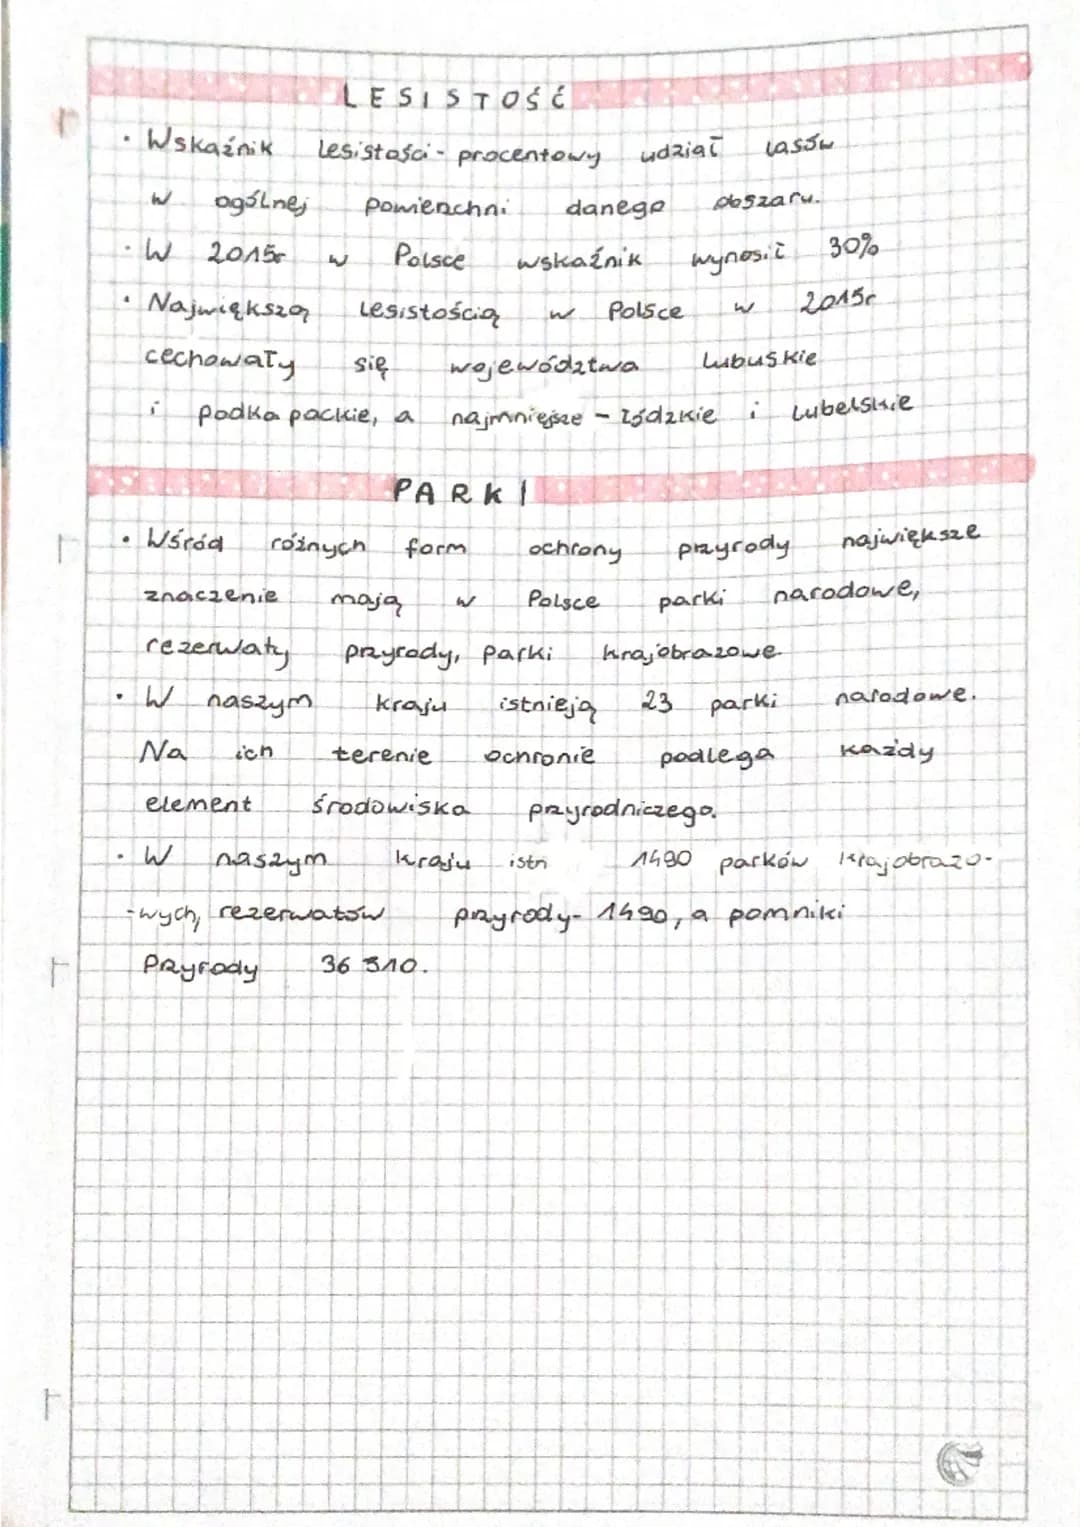 LESISTOŚĆ
• Wskaźnik lesistości - procentowy udział lasów
w ogólnej powierzchni danego obszaru.
• W 2015r w Polsce wskaźnik wynosił 30%
• Największą lesistością w Polsce w 2015r
cechowały się województwa lubuskie
i podkapackie, a najmniejsze - łódzkie i lubelskie
PARKI
• Wśród różnych form ochrony przyrody największe
znaczenie mają w Polsce parki narodowe,
rezerwaty przyrody, parki krajobrazowe
• W naszym kraju istnieją 23 parki narodowe.
Na ich terenie ochronie podlega każdy
element środowiska przyrodniczego.
• W naszym kraju istn 1490 parków krajobrazo-
-wych, rezerwatów przyrody - 1490, a pomniki
Przyrody 36 310.